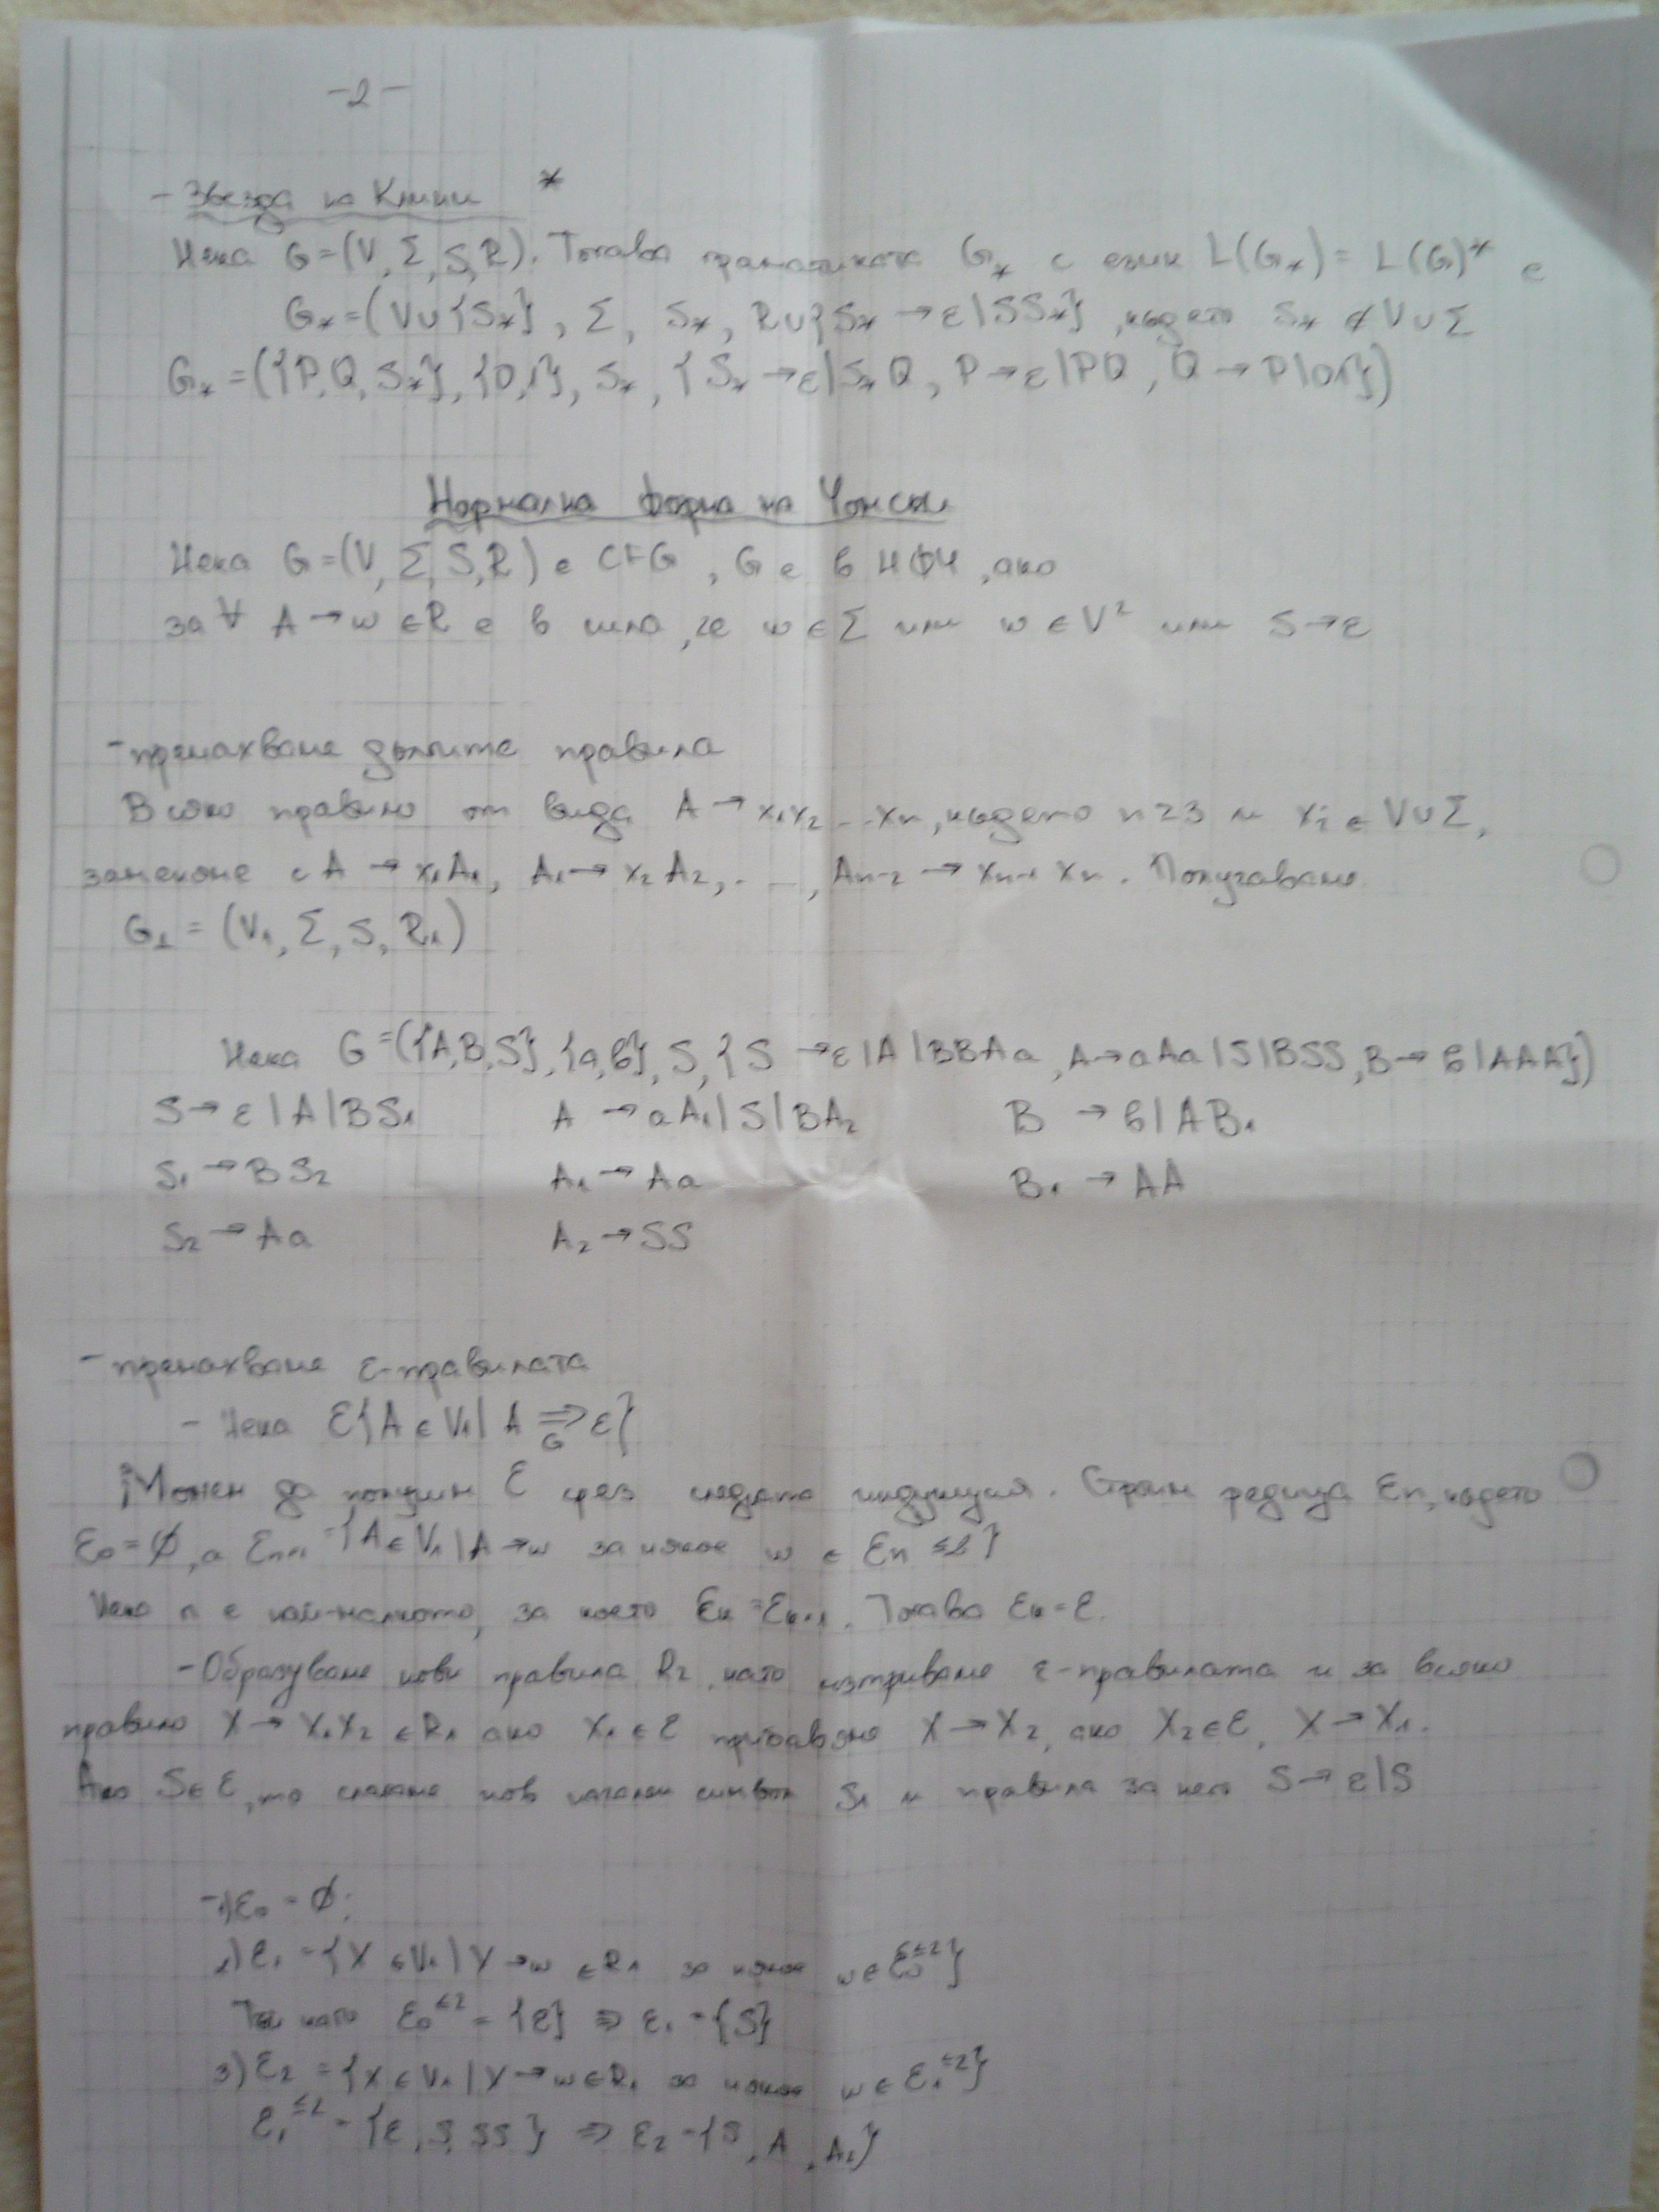 -2-
- Звезда на Клини *
Нека G=(V, Σ, S, R). Тогава граматиката G* с език L(G*) = L(G)* е
G*=(V∪{S*}, Σ, S*, R∪{S* → ε|SS*}, където S* ∉ V∪Σ
G* =({P,Q,S*}, {0,1}, S*, {S* → ε|S*Q, P→ε|PQ, Q→P|01})
Нормална форма на Чомски
Нека G=(V, Σ, S, R) е CFG, G е в НФЧ, ако
за ∀ A→w ∈R е в сила, че w ∈ Σ или w ∈ V² или S→ε
- премахваме дългите правила
Всяко правило от вида A → x₁x₂...xₙ, където n≥3 и xᵢ ∈ V∪Σ,
заменяме с A → x₁A₁, A₁→ x₂A₂, ..., Aₙ₋₂ → xₙ₋₁xₙ. Получаваме
G₁ = (V₁, Σ, S, R₁)
Нека G=({A,B,S}, {a,б}, S, {S →ε|A|BBAa, A→aAa|S|BSS, B→б|AAA})
S→ ε|A|BS₁ A → aA₁|S|BA₂ B → б|AB₁
S₁ → BS₂ A₁ → Aa B₁ → AA
S₂ → Aa A₂ → SS
- премахваме ε-правилата
- Нека ℰ{A ∈ V₁| A ⇒ ε}
G
Можем да получим ℰ чрез следната индукция. Строим редица ℰn, където
ℰ₀=∅, а ℰn+1 = {A ∈ V₁|A→w за някое w ∈ ℰn ≤2}
Нека n е най-малкото, за което ℰk=ℰk+1. Тогава ℰk=ℰ.
- Образуваме нови правила R₂, като изтриваме ε-правилата и за всяко
правило X→X₁X₂ ∈R₁ ако X₁∈ℰ прибавяме X→X₂, ако X₂∈ℰ, X→X₁.
Ако S∈ℰ, то слагаме нов начален символ S₁ и правила за него S→ε|S
-1)ℰ₀ = ∅;
2)ℰ₁ = {X ∈V₁|X→w ∈R₁ за някое w∈ℰ₀≤2}
Тъй като ℰ₀≤2 = {ε} ⇒ ℰ₁ = {S}
3)ℰ₂ = {X∈V₁|X→w∈R₁ за някое w∈ℰ₁≤2}
ℰ₁≤2 = {ε, S, SS} ⇒ ℰ₂ = {S, A, A₂}